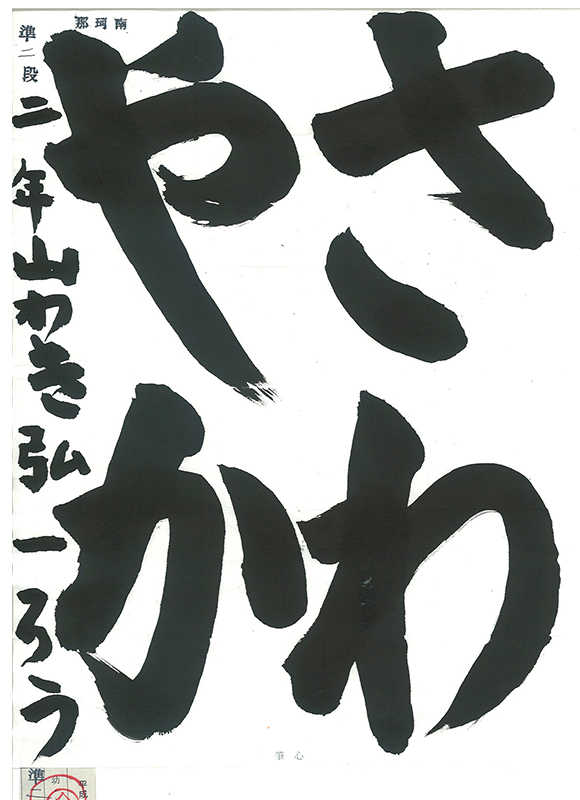 さわ
やか
準二段
二年山わき弘一ろう
南珂那
心筆
準二
功
平成